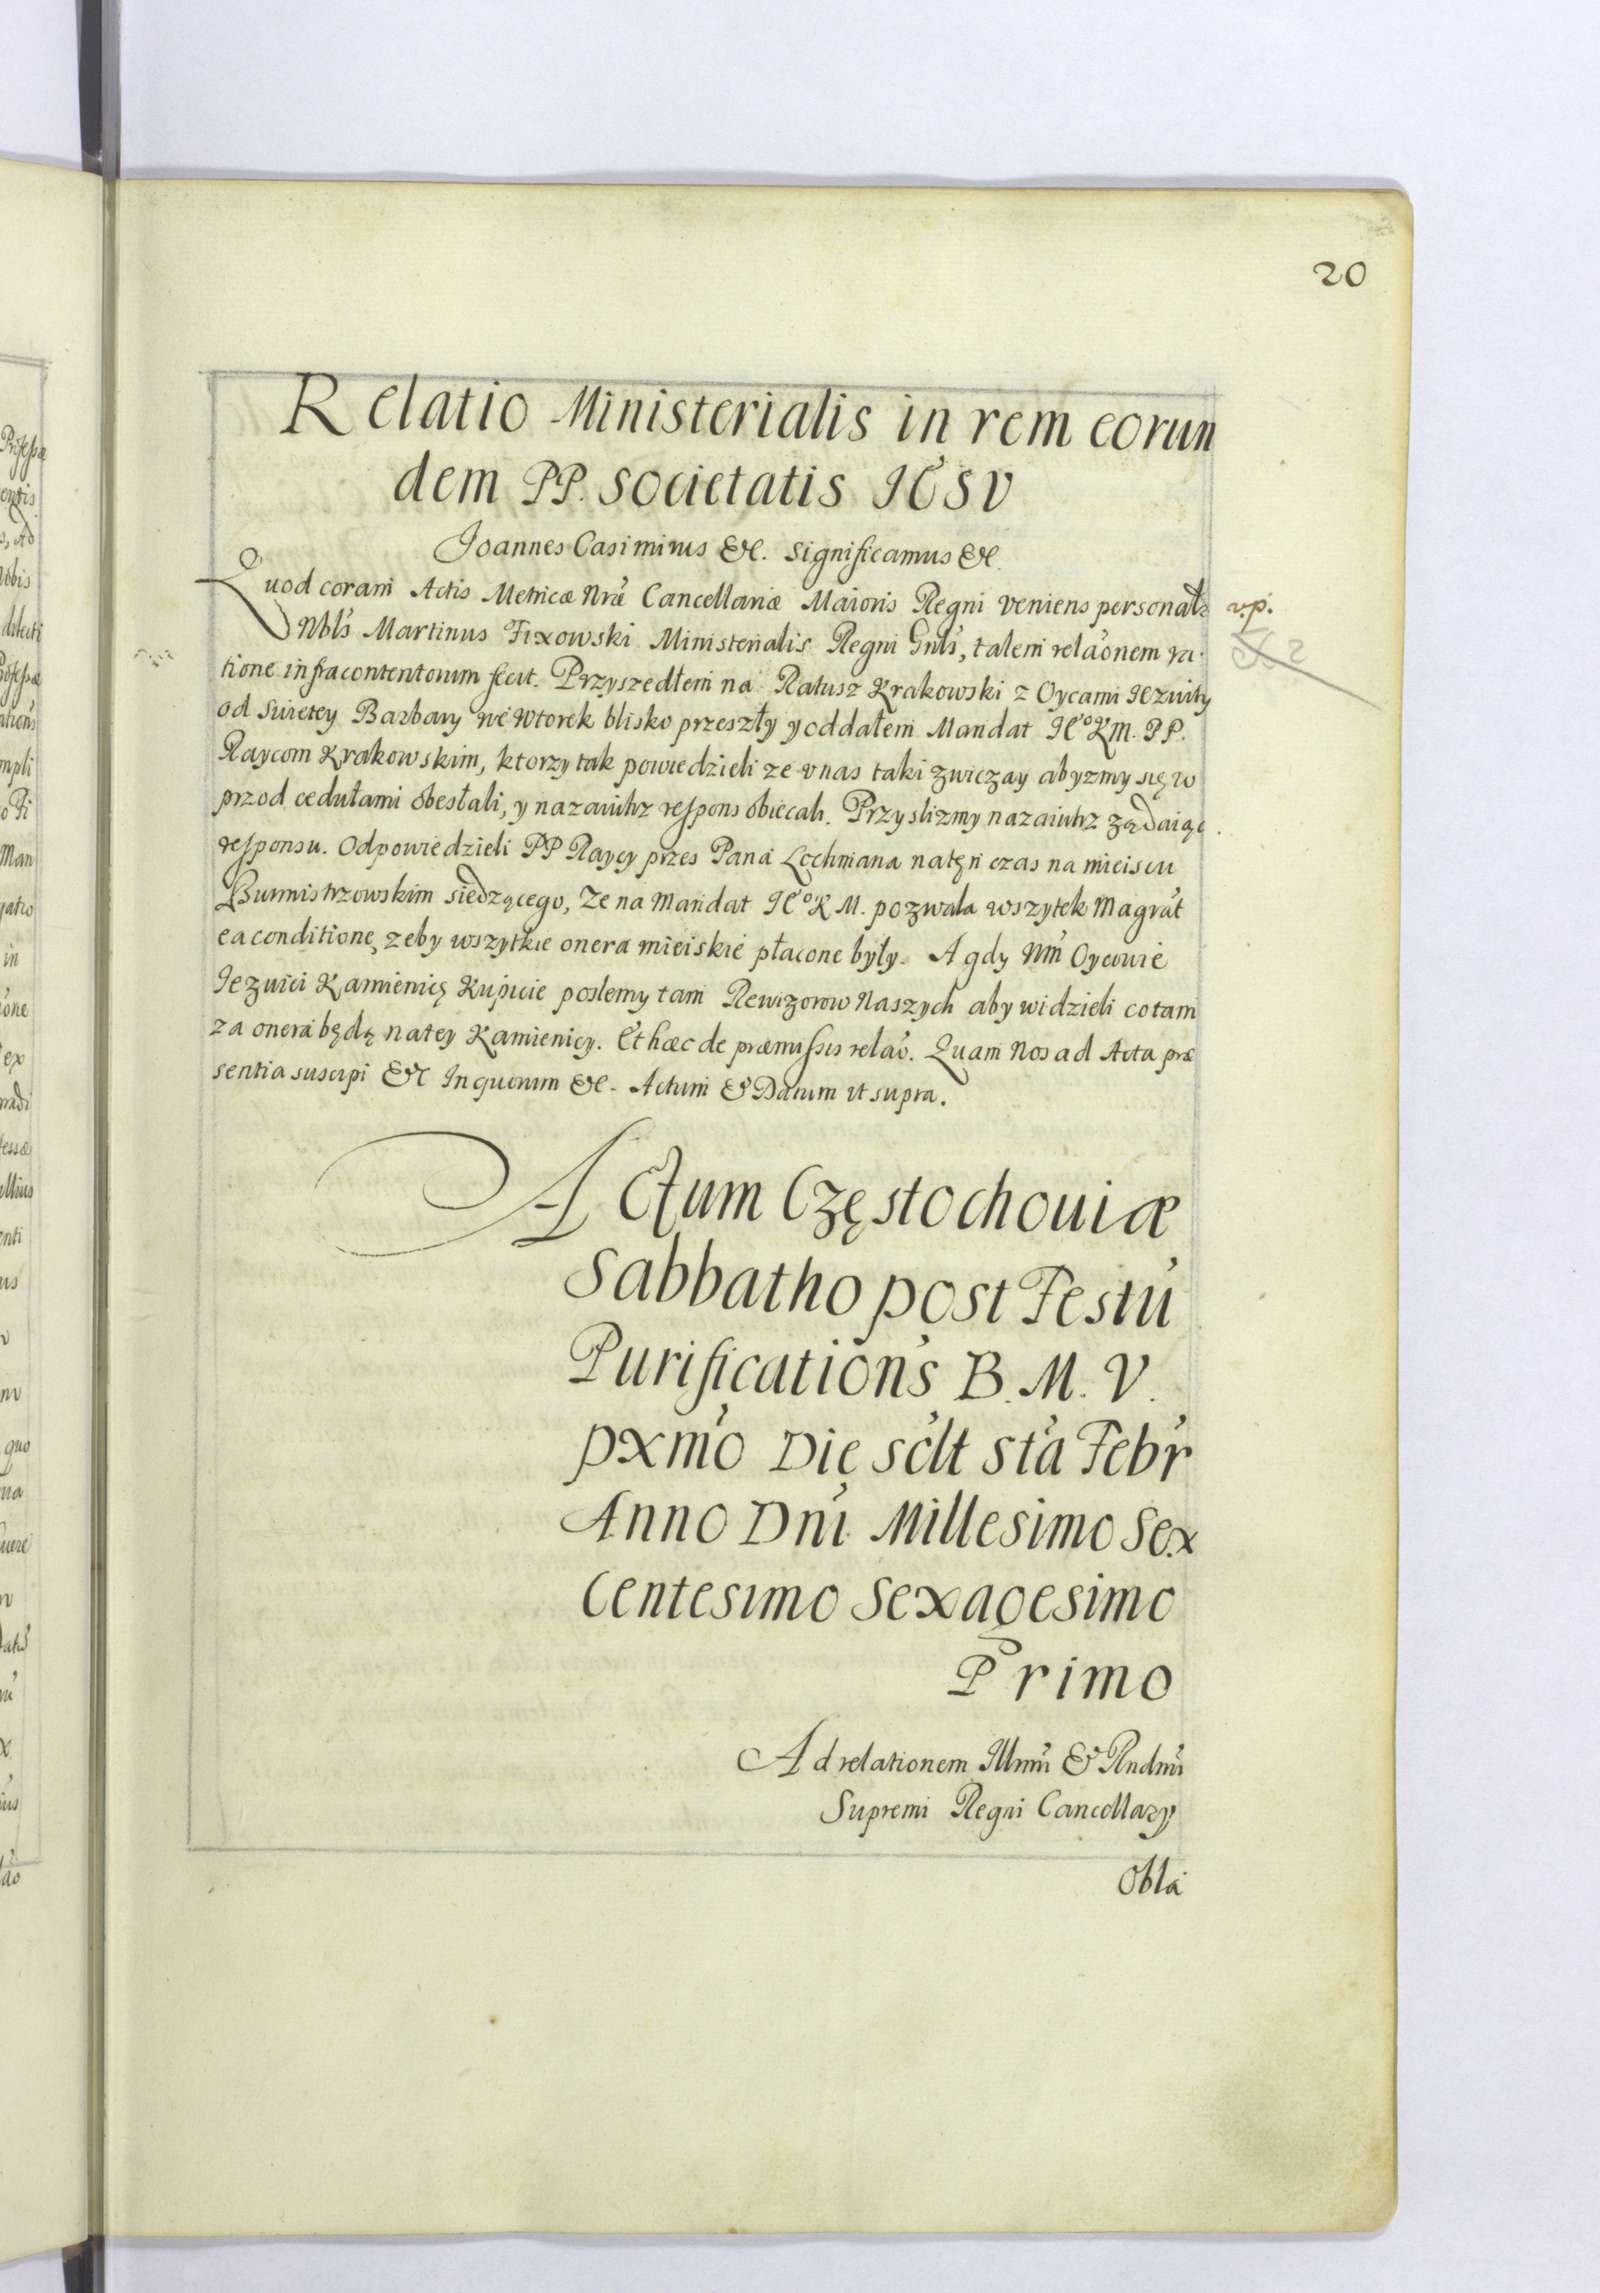 20
Relatio Ministerialis in rem eorun
dem PP. Societatis IESV
Joannes Casimirus &c. Significamus &c.
Quod coram Actis Metricæ Nræ Cancellariæ Maioris Regni veniens personalr
Nbls Martinus Fixowski Ministerialis Regni Gnls, talem relaonem ra-
tione infracontentorum fecit. Przyszedłem na Ratusz Krakowski z Oycami Iezuity
od Swietey Barbary we Wtorek blisko przeszły y oddałem Mandat IE°KM. PP.
Raycom Krakowskim, ktorzy tak powiedzieli ze v nas taki zwiczay abyzmy się w
przod cedułami obesłali, y nazaiutrz respons obiecali. Przyslizmy nazaiutrz ządaiąc
responsu. Odpowiedzieli PP Raycy przes Pana Lochmana natęn czas na mieiscu
Burmistrzowskim siedzącego, Ze na Mandat IE°KM. pozwala wszytek Magrat
ea conditione, zeby wszytkie onera mieiskie płacone były. A gdy Nm Oycowie
Iezuici Kamienicę Kupicie poslemy tam Rewizorow Naszych aby widzieli co tam
za onera będą natey Kamienicy. Et hæc de præmissis relao. Quam Nos ad Acta præ
sentia suscipi &c In quorum &c. Actum & Datum ut supra.
Actum Częstochoviæ
Sabbatho post Festu
Purifications B. M. V.
pxmo Die sclt sta Febr
Anno Dni Millesimo Sex
Centesimo Sexagesimo
Primo
Ad relationem Illmi & Rndmi
Supremi Regni Cancellary
Obla